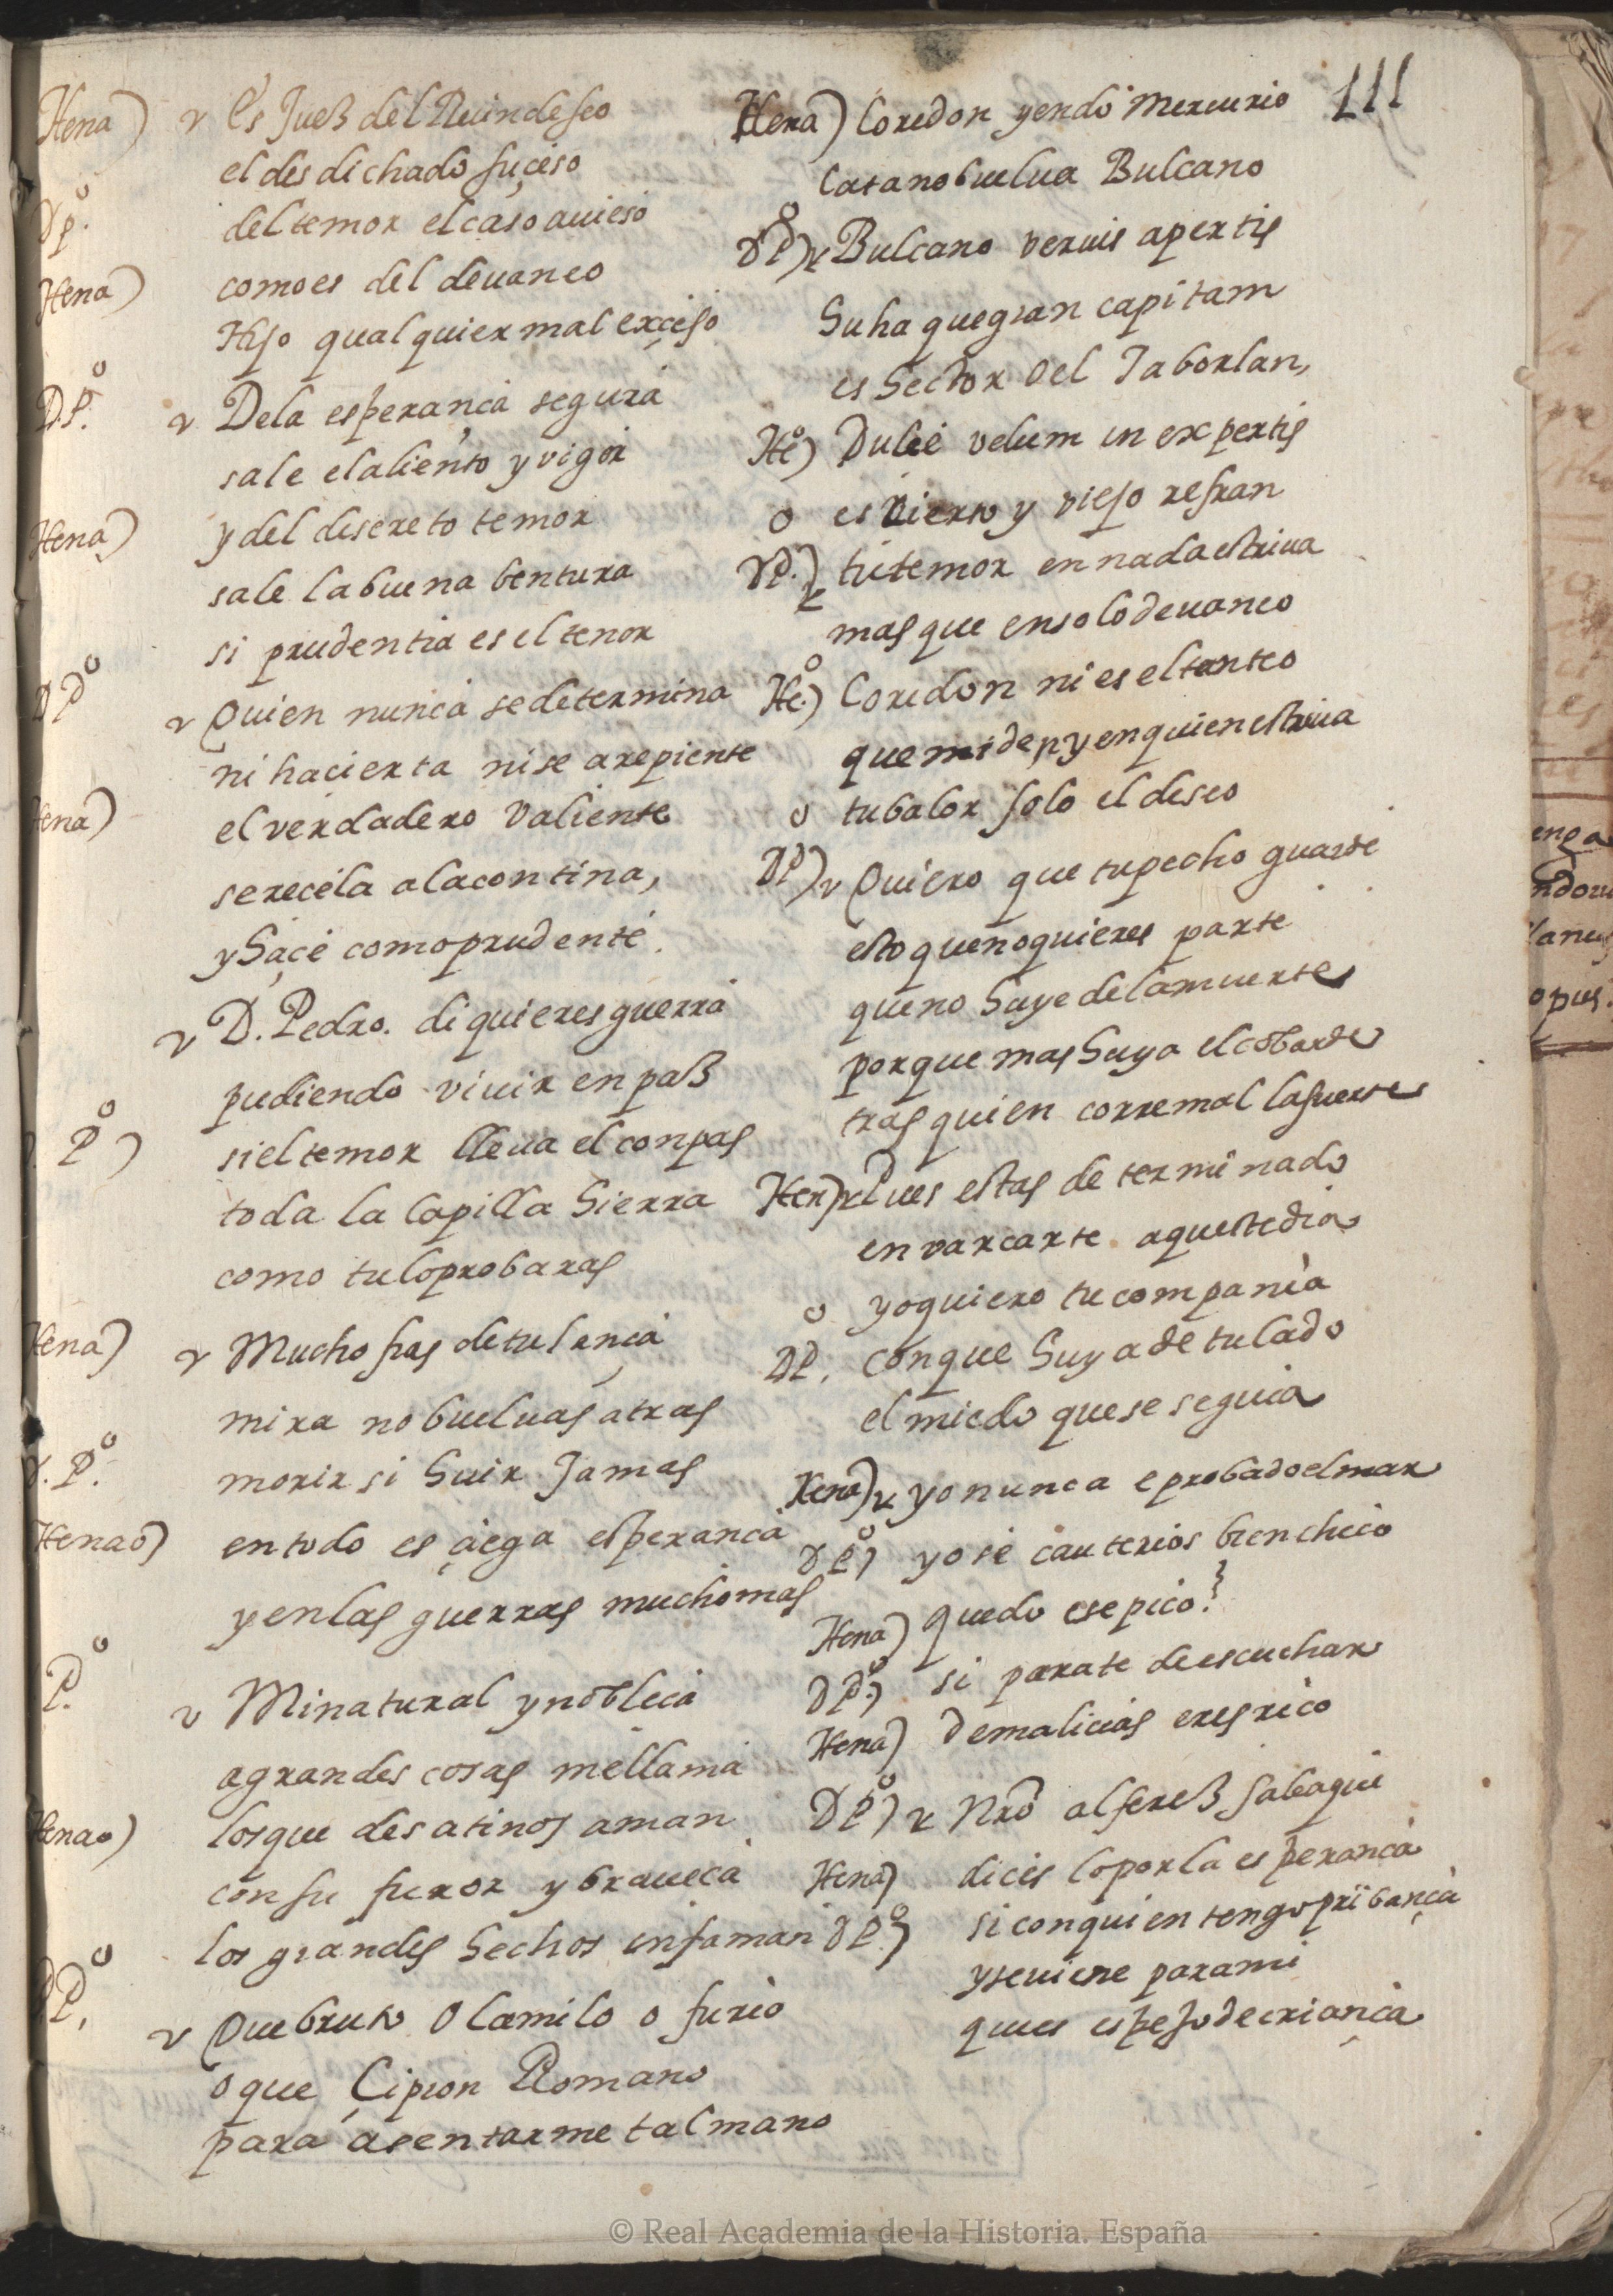 111
Hena) v Es Jueß del Ruin deseo
el des dichado suçeso
D p.o del temor el caso auieso
Hena) como es del deuaneo
Hijo qual quier mal exçeso
D.P.o v Dela esperança segura
sale el aliento y vigor
Hena) y del discreto temor
sale la buena bentura
si prudentia es el tenor
D Po v Quien nunca se determina
ni hacierta ni se arepiente
Hena) el verdadero valiente
se recela a la contina,
y haçe como prudente.
v D. Pedro. di quieres guerra
pudiendo viuir en paß
D. Po) si el temor lleua el conpas
toda la Capilla hierra
como tu lo probaras
Hena) v Mucho fias de tu lança
mira no buelvas atras
D. P.o morir si huir Jamas
Henao) en todo es çiega esperanca
y en las guerras mucho mas
P.o v Mi natural y nobleca
a grandes cosas me llama
Henao) los que desatinos aman
con su furor y braueca
los grandes hechos infaman
DPo, v Que bruto O Camilo o furio
o que Çipion Romano
para asentarme tal mano
Hena) Coredon yendo Mercurio
Cata no buelua Bulcano
D Po) v Bulcano veruis apertis
Su ha que gran capitam
es hector del Taborlan,
Heo) Dulce velum in expertis
o es Vierto y viejo refran
DP.) v tu temor en nada estriua
mas que en solo deuaneo
Heo.) Coridon ni es el tanteo
que miden y en quien estriua
o tu balor solo el deseo
DP) v Quiero que tu pecho guarde
esto que no quieres parte
que no huye de la muerte
porque mas huya el cobarde
tras quien corre mal la suerte
Hen) v Pues estas determinado
en varcarte aqueste dia
o yo quiero tu compania
DP. con que huya de tu lado
el miedo que se seguia
Hena) v yo nunca e probado el mar
D Po) yo se cauterios bien chico
Hena) quedo ese pico?
D Po.) si parate de escuchar
Hena) de malicias eres rico
D Po) v Nro alfereß sale aqui
Hena) dices lo por la esperanca
D Po.) si con quien tengo pribança
y se uiene para mi
ques espejo de criança